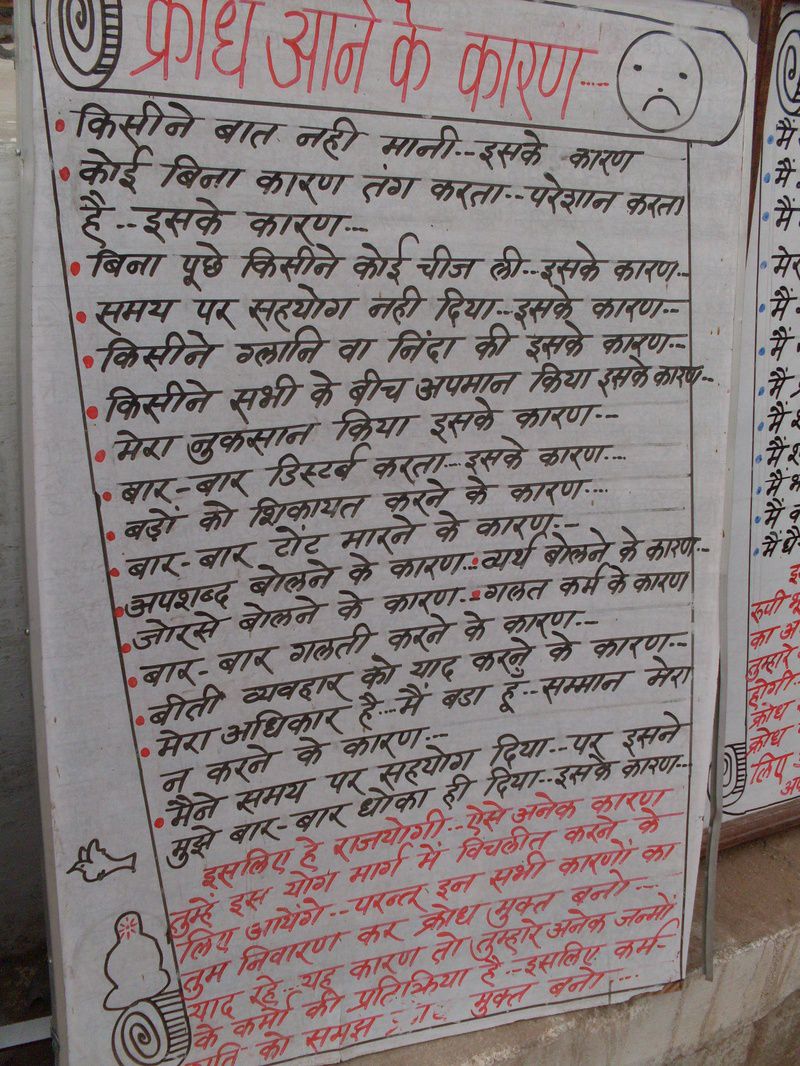 क्रोध आने के कारण....
किसीने बात नही मानी--इसके कारण
कोई बिना कारण तंग करता--परेशान करता
है--इसके कारण---
बिना पूछे किसीने कोई चीज ली--इसके कारण--
समय पर सहयोग नही दिया--इसके कारण--
किसीने ग्लानि वा निंदा की इसके कारण--
किसीने सभी के बीच अपमान किया इसके कारण--
मेरा नुकसान किया इसके कारण---
बार-बार डिस्टर्ब करता---इसके कारण---
बड़ों को शिकायत करने के कारण----
बार-बार टोंट मारने के कारण--
अपशब्द बोलने के कारण--व्यर्थ बोलने के कारण--
जोरसे बोलने के कारण--गलत कर्म के कारण
बार-बार गलती करने के कारण--
बीती व्यवहार को याद करने के कारण--
मेरा अधिकार है--मैं बडा हू--सम्मान मेरा
न करने के कारण--
मैने समय पर सहयोग दिया--पर इसने
मुझे बार-बार धोका ही दिया--इसके कारण--
इसलिए हे राजयोगी--ऐसे अनेक कारण
तुम्हे इस योग मार्ग में विचलीत करने के
लिए आयेंगे--परन्तु इन सभी कारणों का
तुम निवारण कर क्रोध मुक्त बनो---
याद रहे--यह कारण तो तुम्हारे अनेक जन्मों
के कर्मो की प्रतिक्रिया है--इसलिए कर्म-
को समझ मुक्त बनो---
मैं
मैं
मैं
मेर
मैं
मैं
मैं
मैं
मैं
मैं
मैं
रुपी
का
तुम्हारे
होगी
क्रोध
क्रोध
लिए